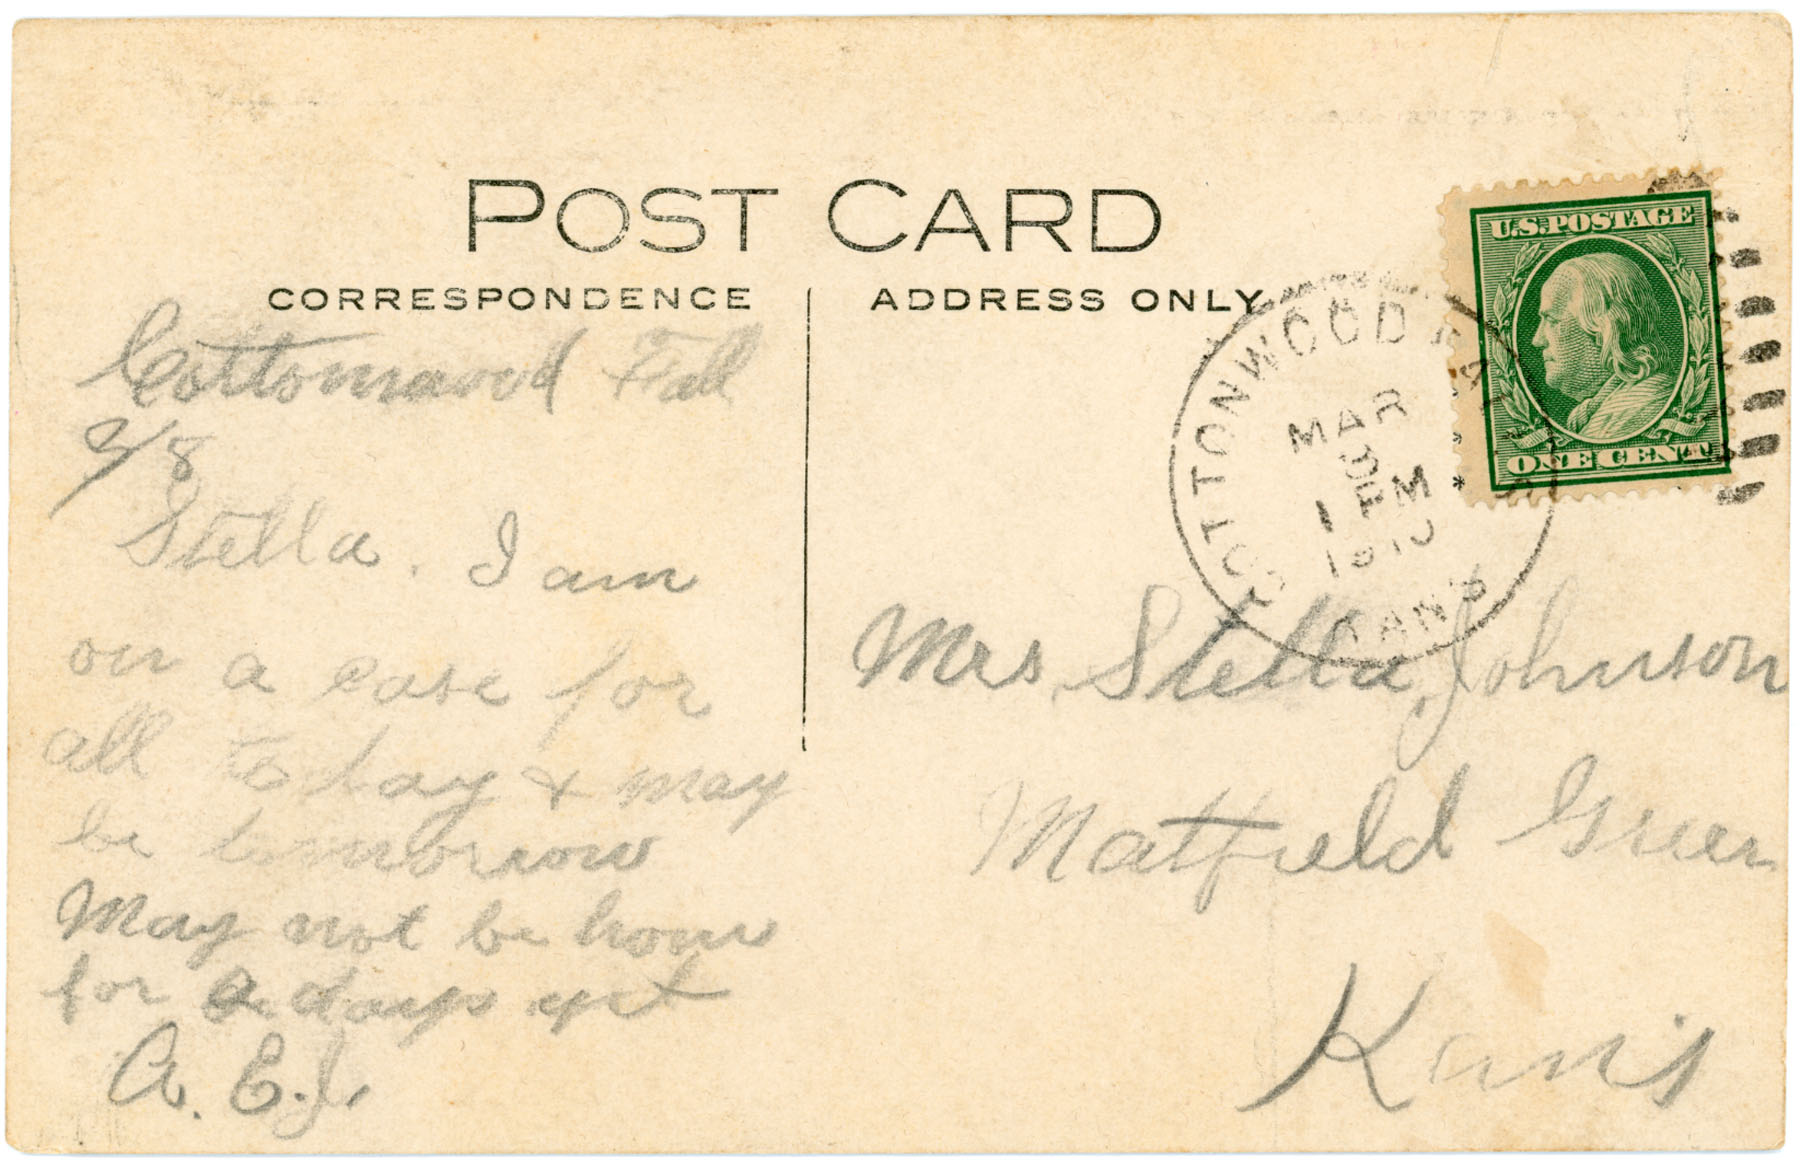 POST CARD
CORRESPONDENCE
ADDRESS ONLY
U.S. POSTAGE
ONE CENT
COTTONWOOD FALLS
MAR
8
1 PM
1910
KANS
Cottonwood Fall
3/8
Stella. I am
on a case for
all to day & may
be tomorrow
May not be home
for a days yet
A. E. J.
Mrs. Stella Johnson
Matfield Green
Kans